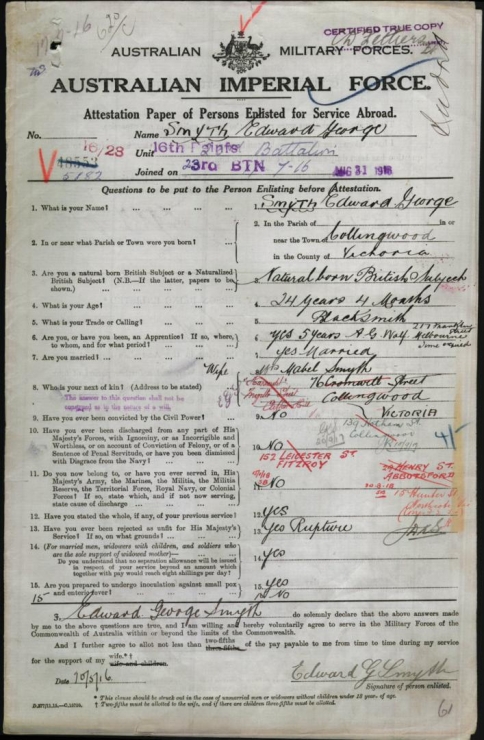 CERTIFIED TRUE COPY
AUSTRALIAN MILITARY FORCES.
AUSTRALIAN IMPERIAL FORCE.
Attestation Paper of Persons Enlisted for Service Abroad.
No. Name Smyth Edward George
16/23 Unit Battalion
5152 Joined on 23rd BTN 7-16 AUG 31 1916
Questions to be put to the Person Enlisting before Attestation.
1. What is your Name? 1. Smyth Edward George
2. In or near what Parish or Town were you born? 2. In the Parish of in or
near the Town of Collingwood
in the County of Victoria
3. Are you a natural born British Subject or a Naturalized
British Subject? (N.B.—If the latter, papers to be
shown.) 3. Natural born British Subject
4. What is your Age? 4. 24 years 4 Months
5. What is your Trade or Calling? 5. Blacksmith
6. Are you, or have you been, an Apprentice? If so, where,
to whom, and for what period? 6. yes 5 years A.G. Melbourne
7. Are you married? 7. yes Married
Wife Mrs Mabel Smyth
8. Who is your next of kin? (Address to be stated) 8. 76 Cromwell Street
Collingwood
VICTORIA
9. Have you ever been convicted by the Civil Power? 9. No
10. Have you ever been discharged from any part of His
Majesty's Forces, with Ignominy, or as Incorrigible and
Worthless, or on account of Conviction of Felony, or of a
Sentence of Penal Servitude, or have you been dismissed
with Disgrace from the Navy? 10. No
152 LEICESTER ST
FITZROY
HENRY ST.
ABBOTSFORD
11. Do you now belong to, or have you ever served in, His
Majesty's Army, the Marines, the Militia, the Militia
Reserve, the Territorial Force, Royal Navy, or Colonial
Forces? If so, state which, and if not now serving,
state cause of discharge 11. No
12. Have you stated the whole, if any, of your previous service? 12. yes
13. Have you ever been rejected as unfit for His Majesty's
Service? If so, on what grounds? 13. Yes Rupture
14. (For married men, widowers with children, and soldiers who
are the sole support of widowed mother)—
Do you understand that no separation allowance will be
issued in respect of your service beyond an amount
which together with pay would reach eight shillings per day? 14. yes
15. Are you prepared to undergo inoculation against small pox
and enteric fever? 15. yes
I, Edward George Smyth do solemnly declare that the above answers made
by me to the above questions are true, and I am willing and hereby voluntarily agree to serve in the Military Forces of the
Commonwealth of Australia within or beyond the limits of the Commonwealth.
And I further agree to allot not less than two-fifths three-fifths of the pay payable to me from time to time during my service
for the support of my wife.* wife and children.
Date 20/5/16 Edward G Smyth
Signature of person enlisted.
* This clause should be struck out in the case of unmarried men or widowers without children under 18 year. of age.
† Two-fifths must be allotted to the wife, and if there are children three-fifths must be allotted.
61